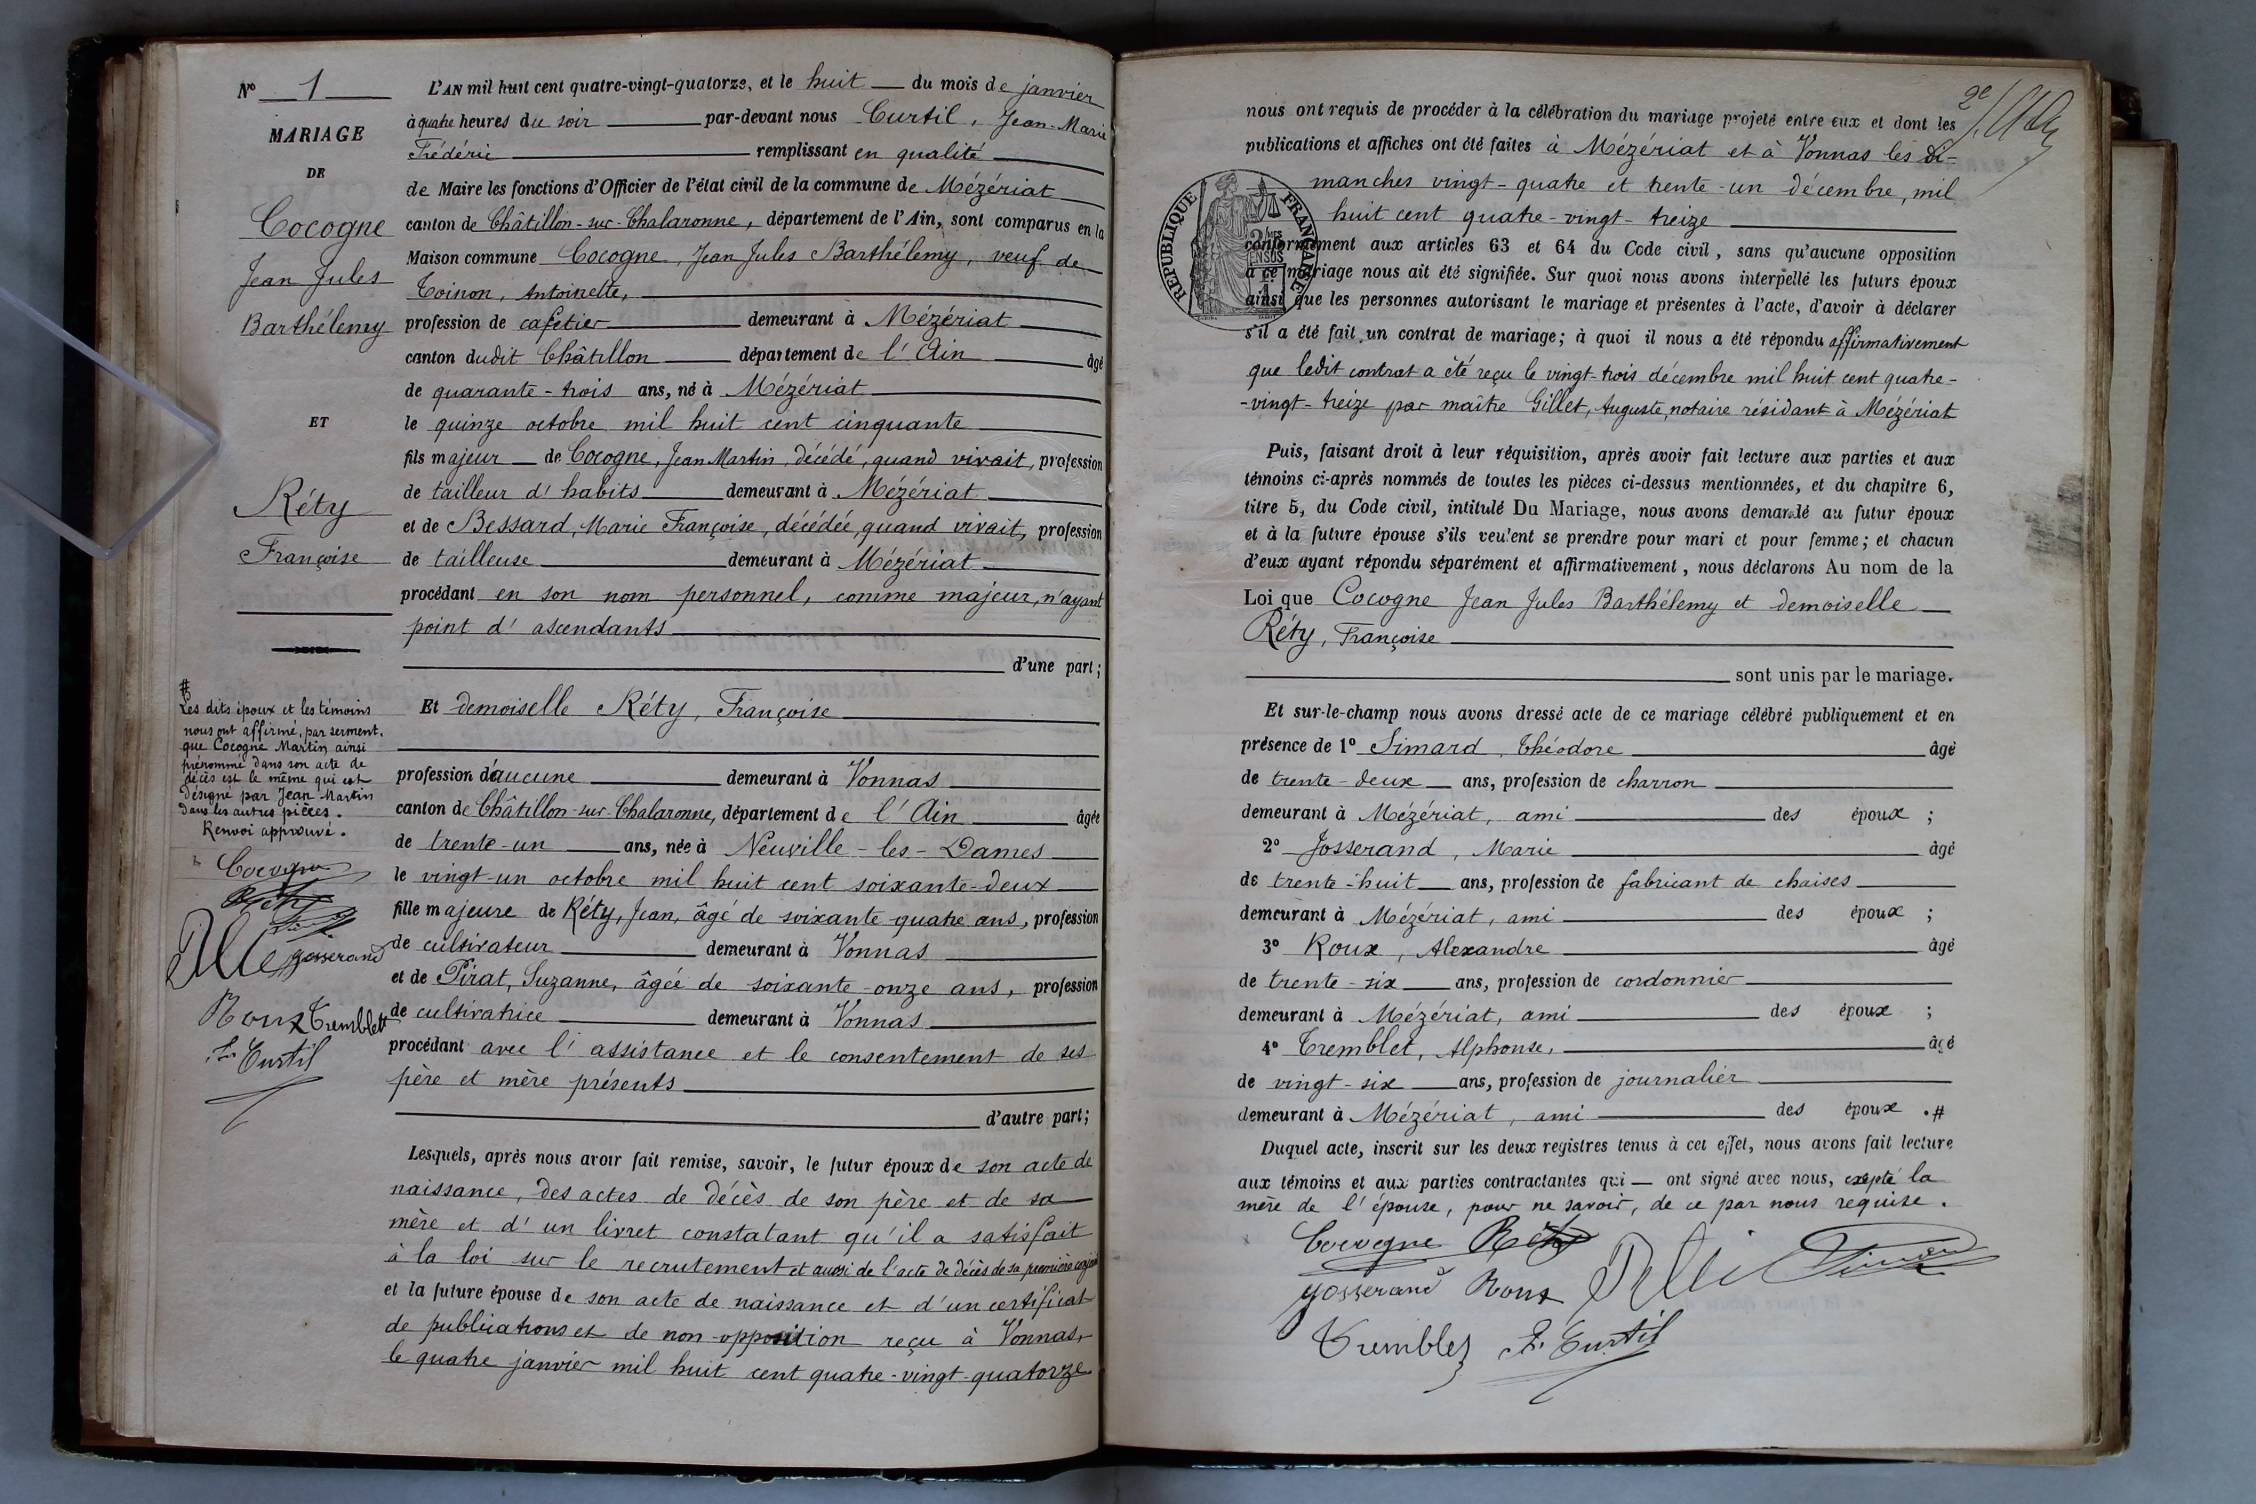 N° 1
MARIAGE
DE
Cocogne
Jean Jules
Barthélemy
ET
Réty
Françoise
#
Les dits époux et les témoins
nous ont affirmé, par serment,
que Cocogne Martin ainsi
prénommé dans son acte de
décès est le même qui est
désigné par Jean-Martin
dans les autres pièces.
Renvoi approuvé.
Cocogne
Réty
Josserand
Roux Tremblet
Curtil
L'AN mil huit cent quatre-vingt-quatorze, et le huit du mois de janvier
à quatre heures du soir par-devant nous Curtil, Jean-Marie
Frédéric remplissant en qualité
de Maire les fonctions d'Officier de l'état civil de la commune de Mézériat
canton de Châtillon-sur-Chalaronne, département de l'Ain, sont comparus en la
Maison commune Cocogne, Jean Jules Barthélemy, veuf de
Toinon, Antoinette,
profession de cafetier demeurant à Mézériat
canton dudit Châtillon département de l'Ain âgé
de quarante-trois ans, né à Mézériat
le quinze octobre mil huit cent cinquante
fils majeur de Cocogne, Jean Martin, décédé, quand vivait, profession
de tailleur d'habits demeurant à Mézériat
et de Bessard, Marie Françoise, décédée, quand vivait, profession
de tailleuse demeurant à Mézériat
procédant en son nom personnel, comme majeur, n'ayant
point d'ascendants
d'une part;
Et demoiselle Réty, Françoise
profession d'aucune demeurant à Vonnas
canton de Châtillon-sur-Chalaronne, département de l'Ain âgée
de trente-un ans, née à Neuville-les-Dames
le vingt-un octobre mil huit cent soixante-deux
fille majeure de Réty, Jean, âgé de soixante quatre ans, profession
de cultivateur demeurant à Vonnas
et de Pirat, Suzanne, âgée de soixante-onze ans, profession
de cultivatrice demeurant à Vonnas
procédant avec l'assistance et le consentement de ses
père et mère présents
d'autre part;
Lesquels, après nous avoir fait remise, savoir, le futur époux de son acte de
naissance, des actes de décès de son père et de sa
mère et d'un livret constatant qu'il a satisfait
à la loi sur le recrutement et aussi de l'acte de décès de sa première conjointe
et la future épouse de son acte de naissance et d'un certificat
de publications et de non-opposition reçu à Vonnas,
le quatre janvier mil huit cent quatre-vingt-quatorze
2e
nous ont requis de procéder à la célébration du mariage projeté entre eux et dont les
publications et affiches ont été faites à Mézériat et à Vonnas les di-
manches vingt-quatre et trente-un décembre, mil
huit cent quatre-vingt-treize
RÉPUBLIQUE FRANÇAISE
conformément aux articles 63 et 64 du Code civil, sans qu'aucune opposition
à ce mariage nous ait été signifiée. Sur quoi nous avons interpellé les futurs époux
ainsi que les personnes autorisant le mariage et présentes à l'acte, d'avoir à déclarer
s'il a été fait un contrat de mariage; à quoi il nous a été répondu affirmativement
que ledit contrat a été reçu le vingt-trois décembre mil huit cent quatre-
-vingt-treize par maître Gillet, Auguste, notaire résidant à Mézériat
Puis, faisant droit à leur réquisition, après avoir fait lecture aux parties et aux
témoins ci-après nommés de toutes les pièces ci-dessus mentionnées, et du chapitre 6,
titre 5, du Code civil, intitulé Du Mariage, nous avons demandé au futur époux
et à la future épouse s'ils veulent se prendre pour mari et pour femme; et chacun
d'eux ayant répondu séparément et affirmativement, nous déclarons Au nom de la
Loi que Cocogne Jean Jules Barthélemy et demoiselle
Réty, Françoise
sont unis par le mariage.
Et sur-le-champ nous avons dressé acte de ce mariage célébré publiquement et en
présence de 1° Simard, Théodore âgé
de trente-deux ans, profession de charron
demeurant à Mézériat, ami des époux ;
2° Josserand, Marie âgé
de trente-huit ans, profession de fabricant de chaises
demeurant à Mézériat, ami des époux ;
3° Roux, Alexandre âgé
de trente-six ans, profession de cordonnier
demeurant à Mézériat, ami des époux ;
4° Tremblet, Alphonse, âgé
de vingt-six ans, profession de journalier
demeurant à Mézériat, ami des époux .#
Duquel acte, inscrit sur les deux registres tenus à cet effet, nous avons fait lecture
aux témoins et aux parties contractantes qui ont signé avec nous, exepté la
mère de l'épouse, pour ne savoir, de ce par nous requise.
Cocogne Réty Simard
Josserand Roux
Tremblet Curtil